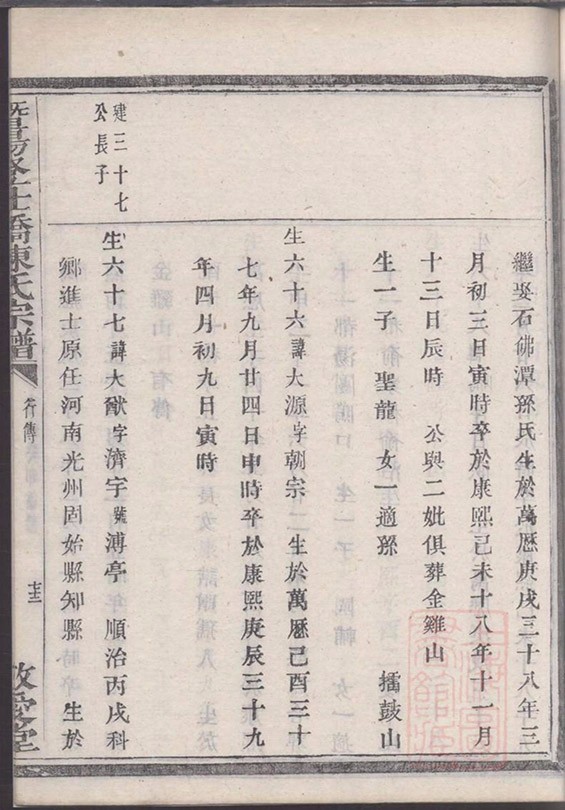 繼娶石佛潭孫氏生於萬歷庚戌三十八年三
月初三日寅時卒於康熙己未十八年十一月
十三日辰時 公與二妣俱葬金雞山
生一子 聖龍 女一適孫 擂鼓山
生六十六諱大源字朝宗 生於萬歷己酉三十
七年九月廿四日申時卒於康熙庚辰三十九
年四月初九日寅時
建三十七
公長子
生六十七諱大猷字濟宇號溥亭 順治丙戌科
鄉進士原任河南光州固始縣知縣 生於
暨陽 橋陳氏宗譜
行傳
敬愛堂